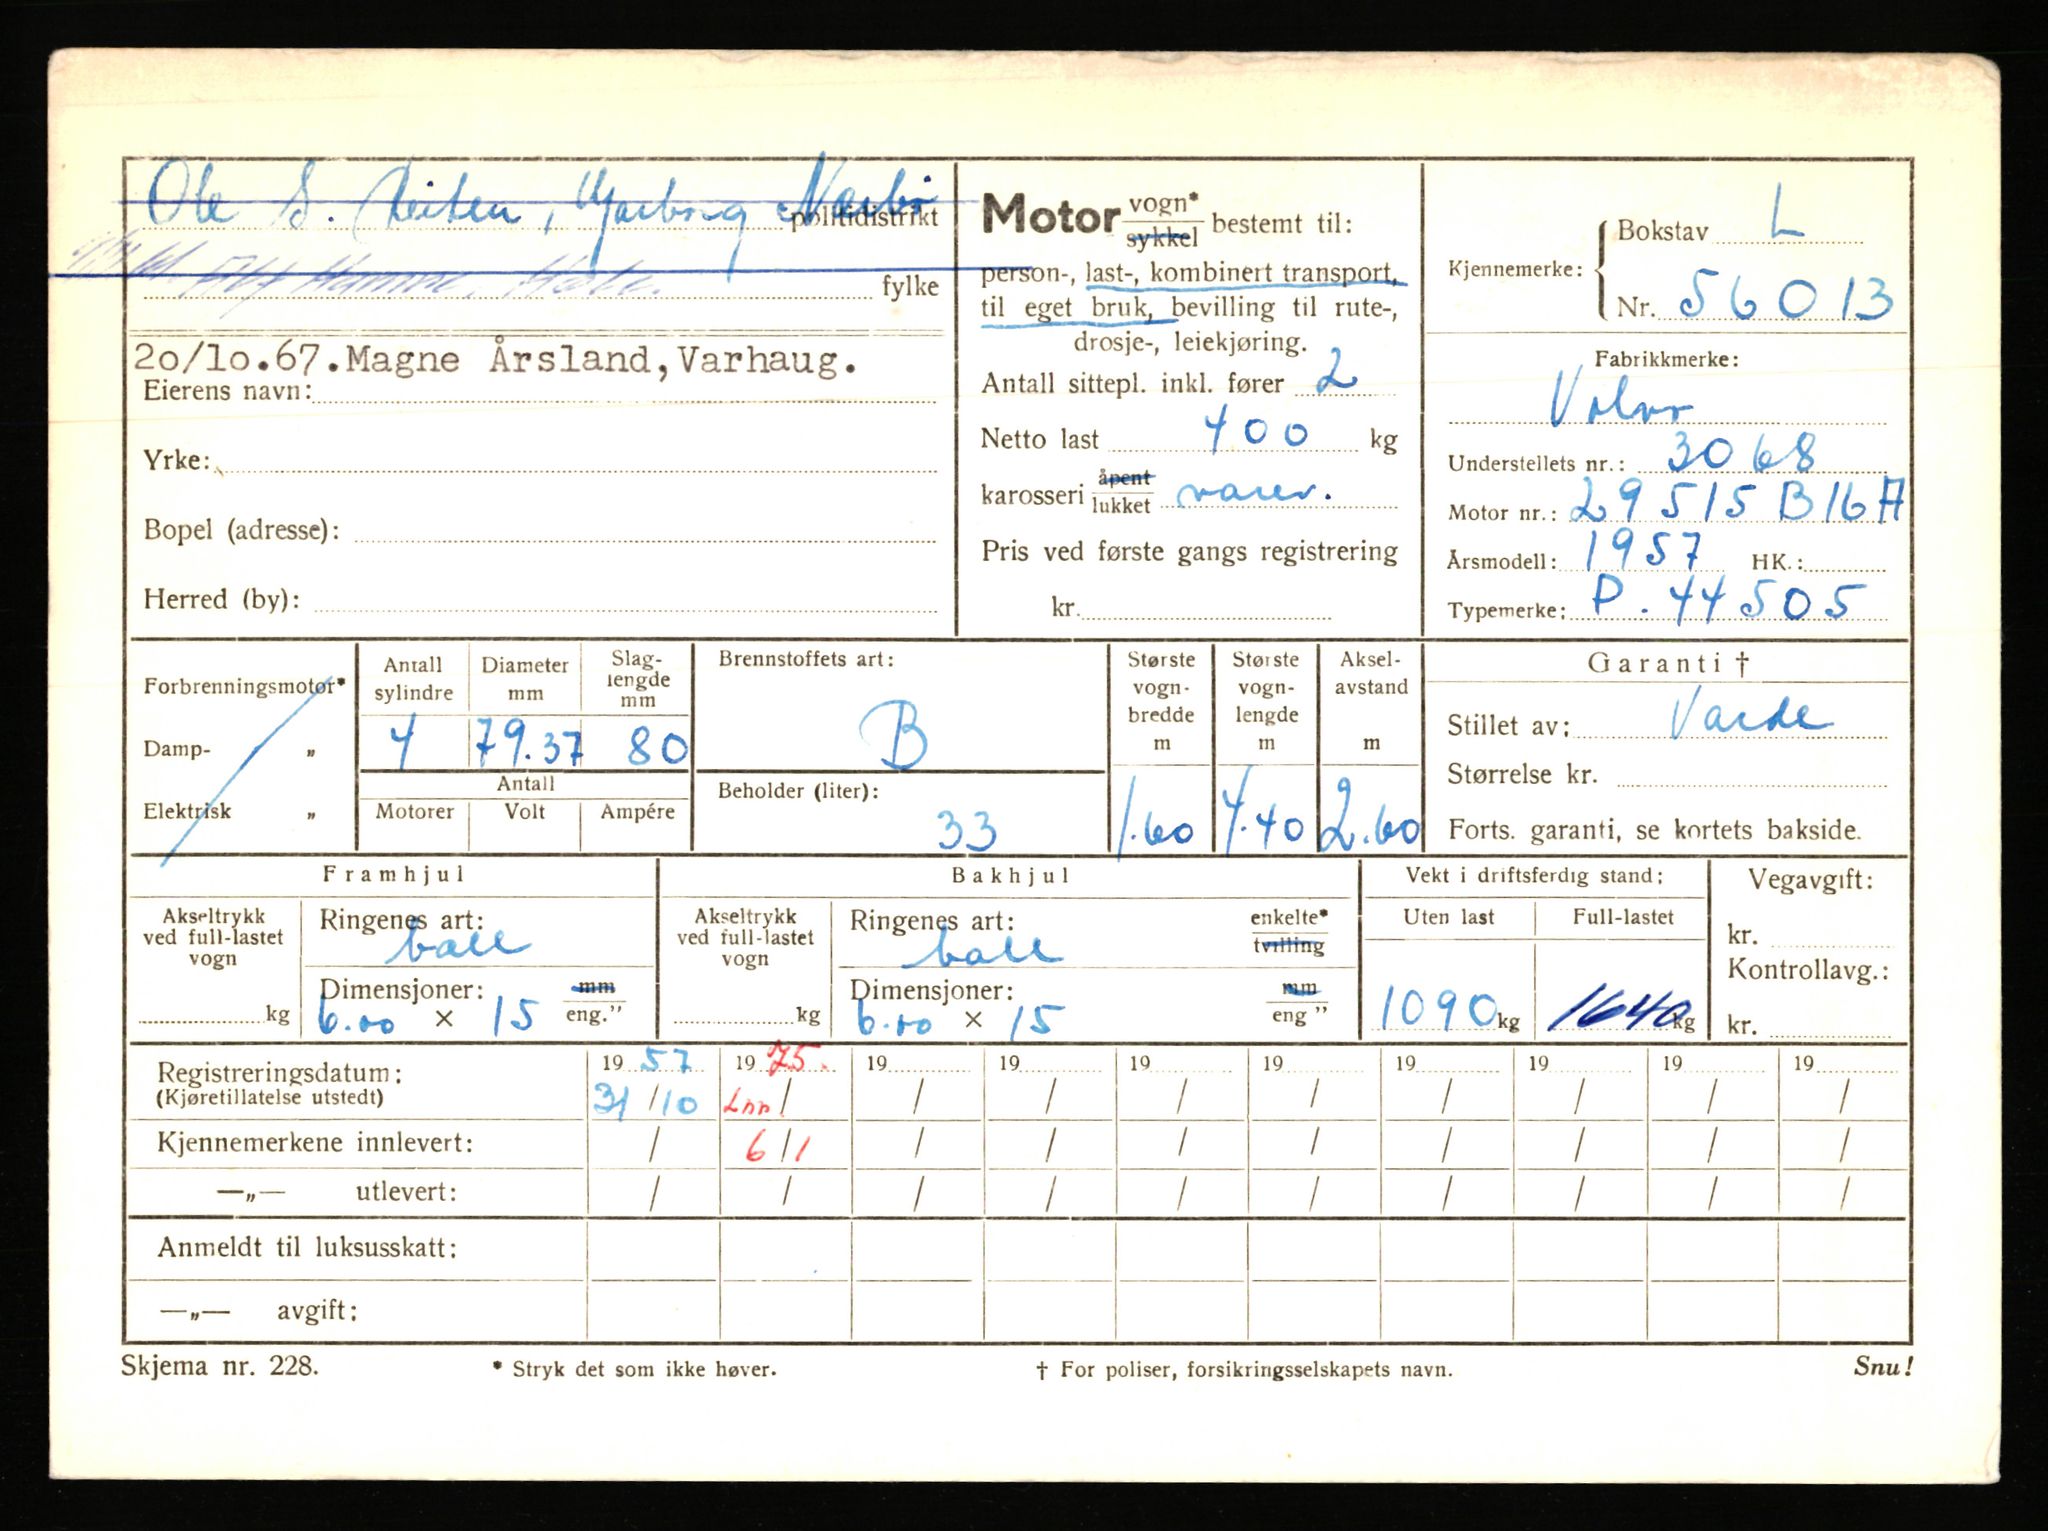 Ole S. , Nærbø
politidistrikt
fylke
2o/1o.67.Magne Årsland,Varhaug.
Eierens navn:
Yrke:
Bopel (adresse):
Herred (by):
Motor vogn* sykkel bestemt til:
person-, last-, kombinert transport,
til eget bruk, bevilling til rute-,
drosje-, leiekjøring.
Antall sittepl. inkl. fører 2
Netto last 400 kg
karosseri åpent lukket varev.
Pris ved første gangs registrering
kr.
Kjennemerke:
Bokstav L
Nr. 56013
Fabrikkmerke:
Volvo
Understellets nr.: 3068
Motor nr.: 29515 B16A
Årsmodell: 1957 HK.:
Typemerke: P. 44505
Forbrenningsmotor*
Damp- „
Elektrisk „
Antall sylindre Diameter mm Slag-lengde mm
4 79.37 80
Antall
Motorer Volt Ampére
Brennstoffets art:
B
Beholder (liter):
33
Største vogn-bredde m
1.60
Største vogn-lengde m
4.40
Aksel-avstand m
2.60
Garanti †
Stillet av: Varde
Størrelse kr.
Forts. garanti, se kortets bakside.
Framhjul
Akseltrykk ved full-lastet vogn
kg
Ringenes art:
ball
Dimensjoner: mm
6.00 × 15 eng.”
Bakhjul
Akseltrykk ved full-lastet vogn
kg
Ringenes art: enkelte* tvilling
ball
Dimensjoner: mm
6.00 × 15 eng ”
Vekt i driftsferdig stand:
Uten last Full-lastet
1090 kg 1640 kg
Vegavgift:
kr.
Kontrollavg.:
kr.
Registreringsdatum: 19 57 19 75. 19 19 19 19 19 19 19 19
(Kjøretillatelse utstedt) 31/10 Lnr. / / / / / / / / /
Kjennemerkene innlevert: / 6/1 / / / / / / / /
—„— utlevert: / / / / / / / / / /
Anmeldt til luksusskatt:
—„— avgift:
Skjema nr. 228.
* Stryk det som ikke høver.
† For poliser, forsikringsselskapets navn.
Snu!